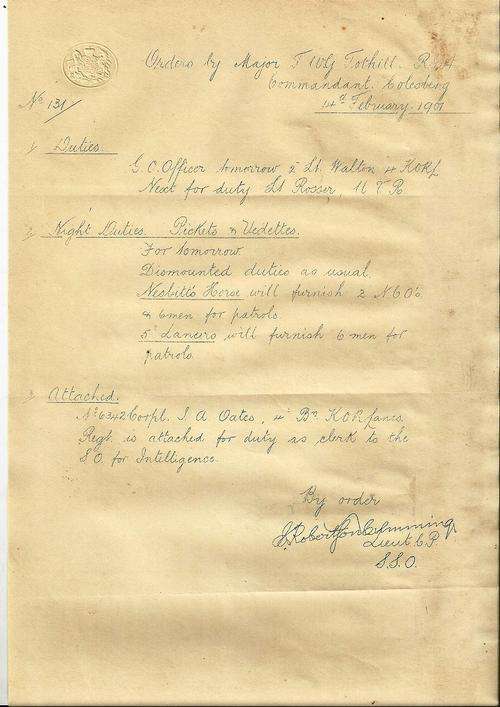 Orders by Major F W G Tothill. R.F.A
Commandant. Colesberg
14th February. 1901
No 131/
1/ Duties.
G.C. Officer tomorrow 2 Lt. Walton 4 KORL
Next for duty Lt Rosser, U V R
2/ Night Duties. Pickets & Vedettes.
For tomorrow.
Dismounted duties as usual.
Nesbitt's Horse will furnish 2 NCO's
& 6 men for patrols.
5th Lancers will furnish 6 men for
patrols.
3/ Attached.
No 6342 Corpl. J A Oates, 4th Bn. K.O.R. Lancs.
Regt. is attached for duty as clerk to the
S.O. for Intelligence.
By order
J. Robertson Cumming
Lieut C.P.
S.S.O.